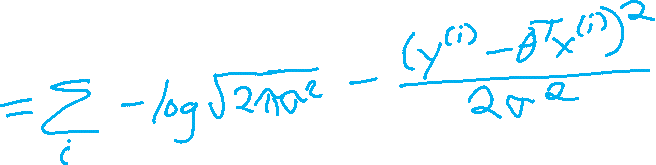 = ∑_i -log√(2πσ²) - (y^(i) - θ^T x^(i))² / 2σ²